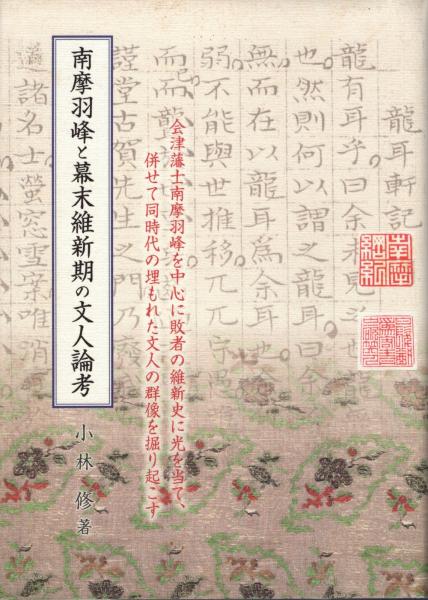 龍耳軒記
龍有耳乎曰余
也然則何以謂之龍耳曰
無而在以龍耳為余耳也
弱不能與世推移兀兀守
而已而龍
謹堂古賀先生之門乃
諸名士螢窓雪案唯
南摩綱紀
会津藩士南摩羽峰を中心に敗者の維新史に光を当て、
併せて同時代の埋もれた文人の群像を掘り起こす
南摩羽峰と幕末維新期の文人論考
小林 修 著